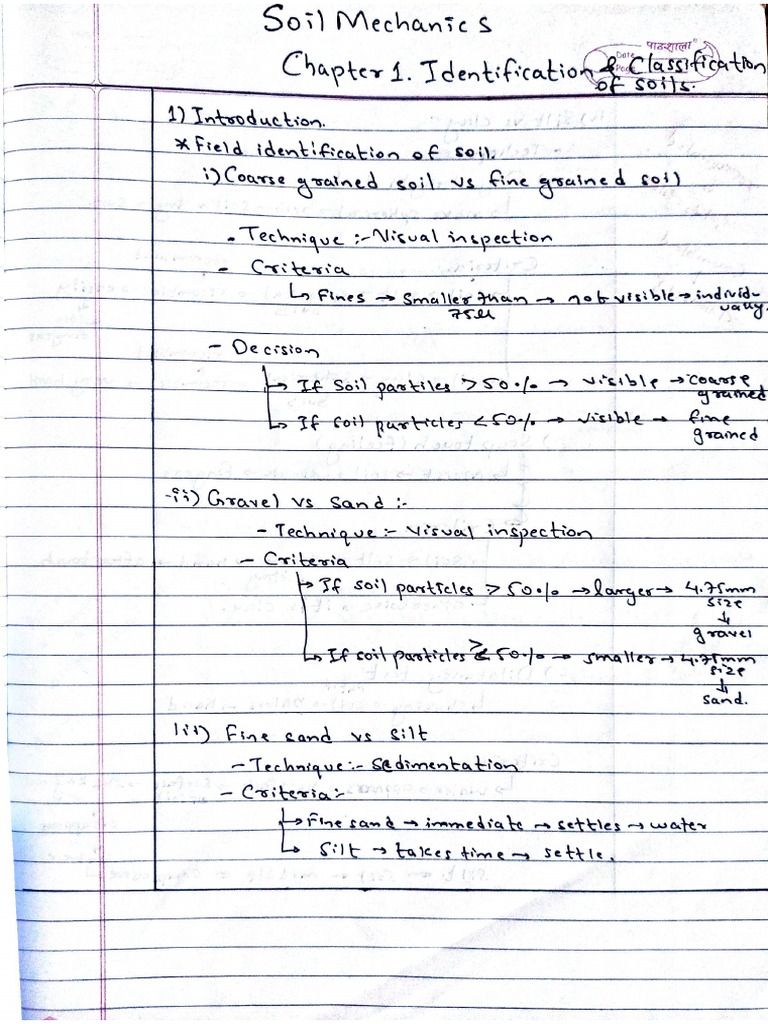 Soil Mechanics
पाठशाला
Date
Page
Chapter 1. Identification & Classification
of soils.
1) Introduction.
* Field identification of soil.
i) Coarse grained soil vs fine grained soil
- Technique :- Visual inspection
- Criteria
↳ Fines → smaller than → not visible → individ-
75μ
ually.
- Decision
↳ If Soil partiles > 50% → visible → coarse
grained
↳ If soil particles < 50% → visible → fine
grained
ii) Gravel vs Sand :-
- Technique :- Visual inspection
- Criteria
↳ If soil particles > 50% → larger → 4.75mm
size
↓
gravel
↳ If soil particles > 50% → smaller → 4.75mm
size
↓
sand.
iii) Fine sand vs silt
- Technique :- Sedimentation
- Criteria :-
↳ Fine sand → immediate → settles → water
↳ Silt → takes time → settle.